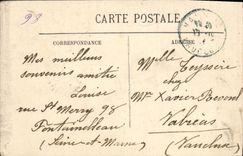 93
CARTE POSTALE
CORRESPONDANCE
ADRESSE
Mes meilleurs
souvenirs amitié
Louise
rue St Merry 98
Fontainebleau
(Seine-et-Marne)
Melle Teyssère
chez
Mr Xavier
Valréas
(Vaucluse)